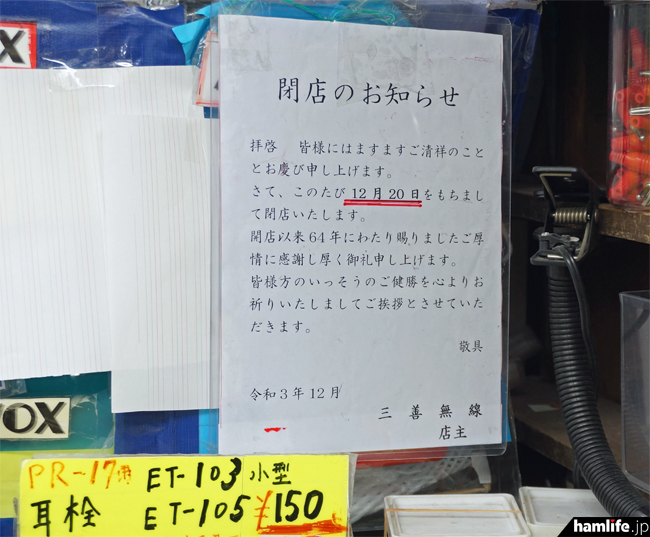 OX
閉店のお知らせ
拝啓　皆様にはますますご清祥のこと
とお慶び申し上げます。
さて、このたび 12月20日をもちまし
て閉店いたします。
開店以来64年にわたり賜りましたご厚
情に感謝し厚く御礼申し上げます。
皆様方のいっそうのご健勝を心よりお
祈りいたしましてご挨拶とさせていた
だきます。
敬具
令和3年12月
三善無線
店主
VOX
PR-17用 ET-103 小型
耳栓 ET-105 ¥150
hamlife.jp